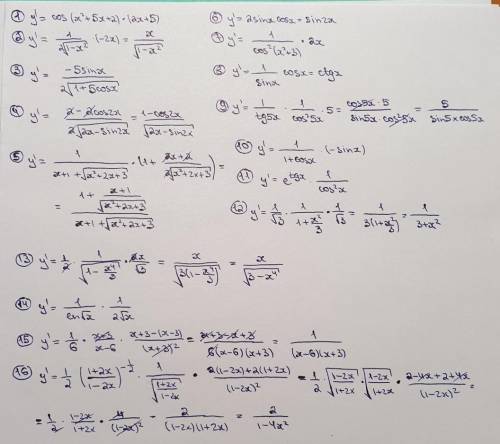 ① y' = cos(x²+5x+2)·(2x+5)
② y' = 1/(2√(1-x²)) · (-2x) = x/√(1-x²)
③ y' = -5sinx/(2√(1+5cosx))
④ y' = (2-2cos2x)/(2√(2x-sin2x)) = (1-cos2x)/√(2x-sin2x)
⑤ y' = 1/(x+1+√(x²+2x+3)) · (1 + (2x+2)/(2√(x²+2x+3))) =
= (1 + (x+1)/√(x²+2x+3))/(x+1+√(x²+2x+3))
⑥ y' = 2sinx cosx = sin2x
⑦ y' = 1/cos²(x²+3) · 2x
⑧ y' = 1/sinx cosx = ctgx
⑨ y' = 1/tg5x · 1/cos²5x · 5 = (cos5x · 5)/(sin5x · cos²5x) = 5/(sin5x cos5x)
⑩ y' = 1/(1+cosx) · (-sinx)
⑪ y' = e^(tgx) · 1/cos²x
⑫ y' = 1/√3 · 1/(1+x²/3) · 1/√3 = 1/(3(1+x²/3)) = 1/(3+x²)
⑬ y' = 1/2 · 1/√(1-x⁴/3) · 2x/√3 = x/√(3(1-x⁴/3)) = x/√(3-x⁴)
⑭ y' = 1/ln√x · 1/(2√x)
⑮ y' = 1/6 · (x+3)/(x-6) · (x+3-(x-3))/(x+3)² = (x+3-x+3)/(6(x-6)(x+3)) = 1/((x-6)(x+3))
⑯ y' = 1/2 ((1+2x)/(1-2x))^(-1/2) · 1/√((1+2x)/(1-2x)) · (2(1-2x)+2(1+2x))/(1-2x)² = 1/2 √((1-2x)/(1+2x)) · √((1-2x)/(1+2x)) · (2-4x+2+4x)/(1-2x)² =
= 1/2 · (1-2x)/(1+2x) · 4/(1-2x)² = 2/((1-2x)(1+2x)) = 2/(1-4x²)